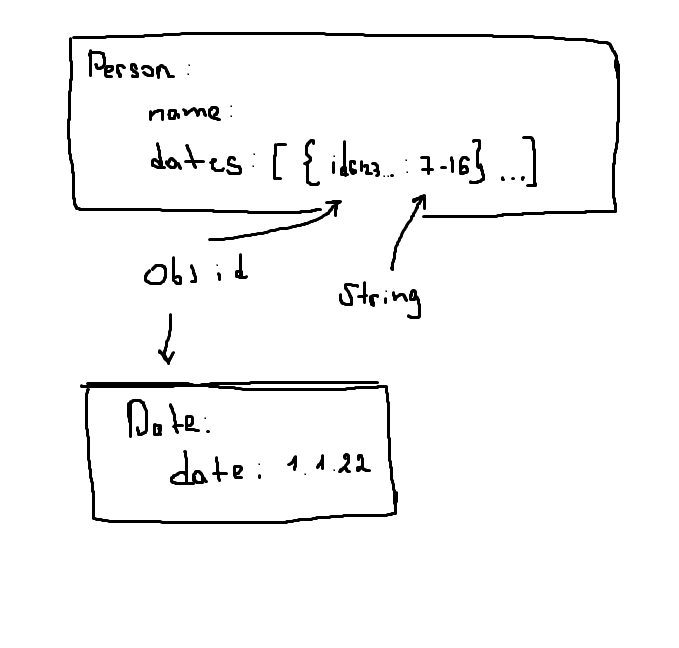 Person:
name:
dates: [ { id6123... : 7-16} ...]
Obs id
String
Date:
date: 1.1.22